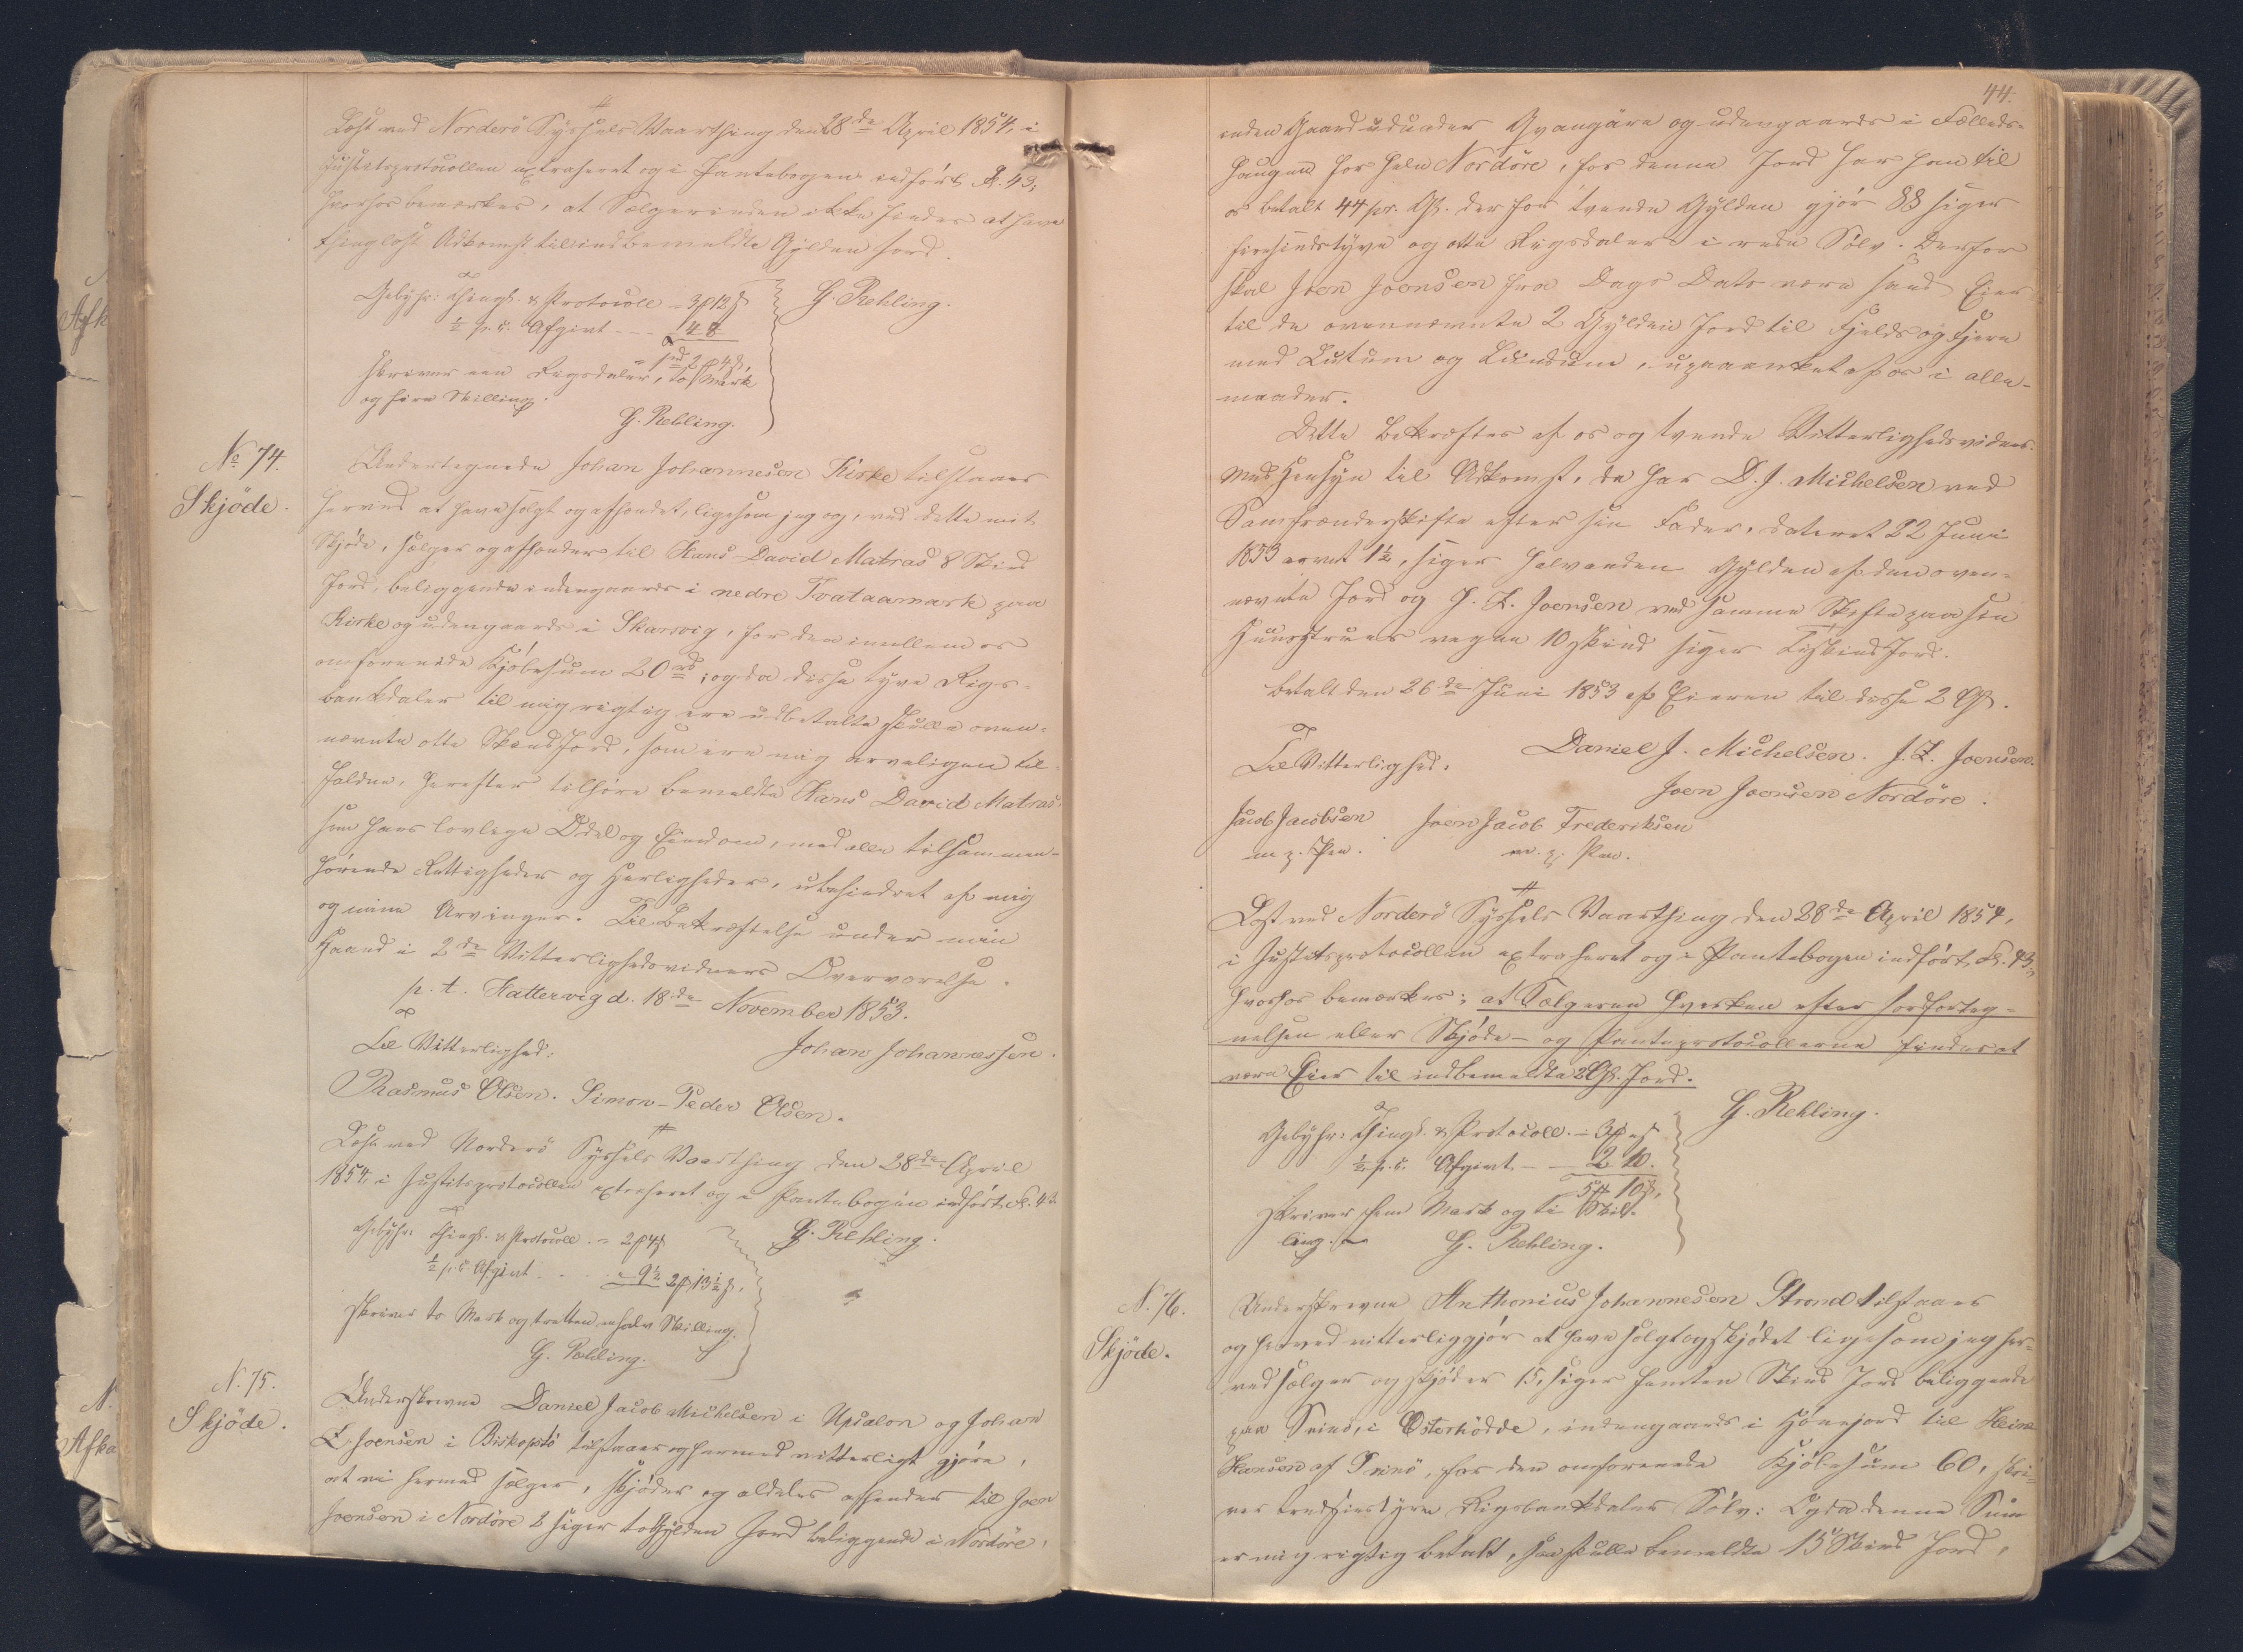 Læst ved Norderö Syssels Vaarthing den 28de April 1854, i
Justitsprotocollen extraheret og i Pantebogen indført Fol. 43,
hvorhos bemærkes, at Sælgerinden ikke findes at have
thinglæst Adkomst til indbemeldte Gylden Jord.
Gebyhr: Thingl. & Protocoll - 3 12
½ p. C. Afgivt - - - 48
skriver een Rigsdaler, to Mark
og fire Skilling.
G. Rehling.
G. Rehling.
No 74.
Skjöde.
Undertegnede Johan Johannesen Kirke tilstaaer
herved at have solgt og afhændet, ligesom jeg og, ved dette mit
Skjöde, sælger og afhænder til Hans David Matras 8 Skind
Jord, beliggende indengaards i nedre Tvataamark paa
Kirke og udengaards i Skarsvig, for den imellem os
omforenede Kjöbesum 20 rd; og da disse tyve Rigs-
bankdaler til mig rigtig ere udbetalte skulle oven-
nævnte otte Skind Jord, som ere mig arveligen til-
faldne, herefter tilhöre bemeldte Hans David Matras
som hans lovlige Odel og Eiendom, med alle tilsammen-
hörende Rettigheder og Herligheder, ubehindret af mig
og mine Arvinger. Til Bekræftelse under min
Haand i 2de Vitterlighedsvidners Overværelse.
p. t. Hattervig d. 18de November 1853.
Til Vitterlighed:
Johan Johannessen.
Rasmus Olsen. Simon-Peder Olsen.
Læst ved Norderö Syssels Vaarthing den 28de April
1854, i Justitsprotocollen extraheret og i Pantebogen indfört Fol. 43.
Gebyhr: Thingl. & Protocoll. - 2 4
½ p. C. Afgivt - - - 9½ 2 13½
skriver to Mark og tretten en halv Skilling.
G. Rehling.
G. Rehling.
N. 75.
Skjöde.
Underskrevne Daniel Jacob Michelsen i Upsalon og Johan
Z. Joensen i Biskopstö tilstaaer og hermed vitterligt gjöre,
at vi hermed sælger, skjöder og aldeles afhender til Joen
Joensen i Nordöre 2 siger to Gylden Jord beliggende i Nordöre,
44.
inden Gaard udunder Gvangåra og udengaards i Fælleds-
haugen for hele Nordöre, for denne Jord har han til
os betalt 44 pr. Gl. der for tvende Gylden gjör 88 siger
firesindstyve og otte Rigsdaler i rede Sölv. Derfor
skal Joen Joensen fra Dags Dato være sand Eier
til de ovennævnte 2 Gylden Jord til Fjelds og Fjere
med Lutum og Lundum, upaaanket af os i alle-
maader.
Dette bekræftes af os og tvende Vitterlighedsvidner.
Med Hensyn til Adkomst, da har D. J. Michelsen ved
Samfrændeskifte efter sin Fader, dateret 22 Juni
1853 arvet 1½, siger halvanden Gylden af den oven-
nævnte Jord og J. Z. Joensen ved samme Skifte paa sin
Huustrues vegne 10 Skind siger Ti Skind Jord.
Betalt den 26de Juni 1853 af Eieren til disse 2 Gl.
Til Vitterlighed.
Daniel J. Michelsen. J. Z. Joensen.
Joen Joensen Nordöre.
Jacob Jacobsen Joen Jacob Frederiksen
m. p. Pen. m. p. Pen.
Læst ved Norderö Syssels Vaarthing den 28de April 1854,
i Justitsprotocollen extraheret og i Pantebogen indfört, Fol. 43,
hvorhos bemærkes; at Sælgeren hverken efter Jordforteg-
nelsen eller Skjöde- og Panteprotocollerne findes at
være Eier til indbemeldte 2 Gl. Jord.
G. Rehling.
Gebyhr: Thingl. & Protocoll. - 3
½ p. C. Afgivt. - - 2 10.
5 10
skriver fem Mark og ti Skil-
ling.
G. Rehling.
N. 76.
Skjöde.
Underskrevne Anthonius Johannesen Strond tilstaaer
og herved vitterliggjör at have solgt og skjödet ligesom jeg her-
ved sælger og skjöder 15, siger femten Skind Jord beliggende
paa Svinö, i Österhödde, indengaards i Hönejord til Heine
Hansen af Svinö, for den omforenede Kjöbesum 60, skri-
ver tredsindstyve Rigsbankdaler Sölv: Og da denne Sum
er mig rigtig betalt, saa skulle bemeldte 15 Skind Jord,